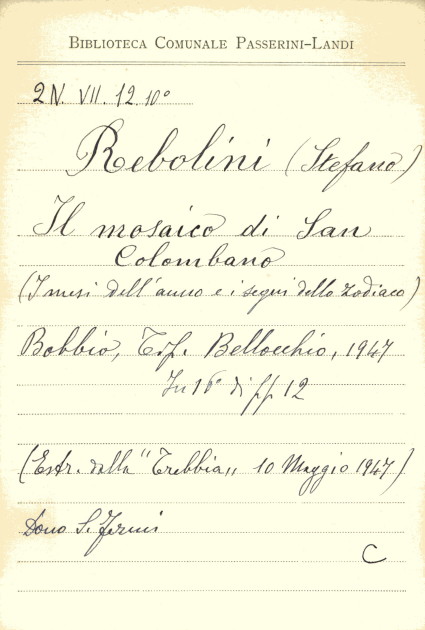 BIBLIOTECA COMUNALE PASSERINI-LANDI
2N. VII. 12. 10°
Rebolini (Stefano)
Il mosaico di San
Colombano
(I mesi dell'anno e i segni dello Zodiaco)
Bobbio, Tip. Bellocchio, 1947
In 16° di pp. 12
(Estr. dalla "Trebbia„ 10 Maggio 1947)
Dono S. Fermi
C